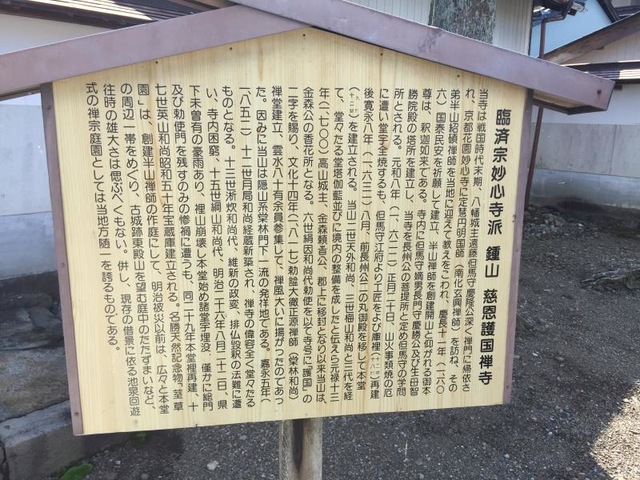 臨済宗妙心寺派 鍾山 慈恩護国禅寺
当寺は戦国時代末期、八幡城主遠藤但馬守慶隆公深く禅門に帰依さ
れ、京都花園妙心寺に定慧円明国師(南化玄興禅師)を訪ね、その
弟半山紹碩禅師を当地に迎えて教えをこわれ、慶長十一年(一六〇
六)国泰民安を祈願して建立、半山禅師を創建開山と仰がれる御本
尊は、釈迦如来である。寺内に但馬守嫡男長門守慶勝公及び生母智
勝院殿の塔所を建立し、当寺を長州公の菩提所と定め但馬守の学問
所とされる。元和八年(一六二二)正月二十日、山火事類焼の厄
に遭い堂宇全焼するも、但馬守江府より工匠をよび庫裡
再建
後寛永八年(一六三一)八月、前長州公二の丸御殿を移して本堂
を建立される。当山二世天外和尚、三世
山和尚と三代を経
て、堂々たる堂塔伽藍並びに境内の整備を成したと伝え元禄十三
年(一七〇〇)高山城主、金森頼
公、郡上に移封となり以来当山は、
金森公の香花所となる。六世絹因和尚代勅使を以て寺号に『護国』の
二字を賜り、文化十四年(一八一七)勅諡大徹正源禅師(棠林和尚)
禅堂建立、雲水八十有余員参集して、禅風大いに揚がったのであっ
た。因みに当山は隠山系棠林門下一流の発祥地である。嘉永五年(
一八五二)十二世月局和尚経蔵新築され、禅寺の偉容全く堂々たる
ものとなる。十三世淅炊和尚代、維新の政変、排仏毀釈の法難に遭
い、寺内困窮、十五世綱山和尚代、明治二十六年八月二十二日、県
下未曽有の豪雨あり、裡山崩壊し本堂始め諸堂宇埋没、僅かに総門
及び勅使門を残すのみの惨禍に遭うも、同二十九年本堂裡再建、十
七世英山和尚昭和五十年宝蔵庫建立される。名勝天然記念物、荎草
園は、創建半山禅師の作庭にして、明治被災以前は、広々と本堂
の周辺一帯をめぐり、古城跡東殿山を望む庭中のたたずまいなど、
往時の雄大さは偲ぶべくもない。併し、現存の借景に依る池泉回遊
式の禅宗庭園としては当地方随一を誇るものである。